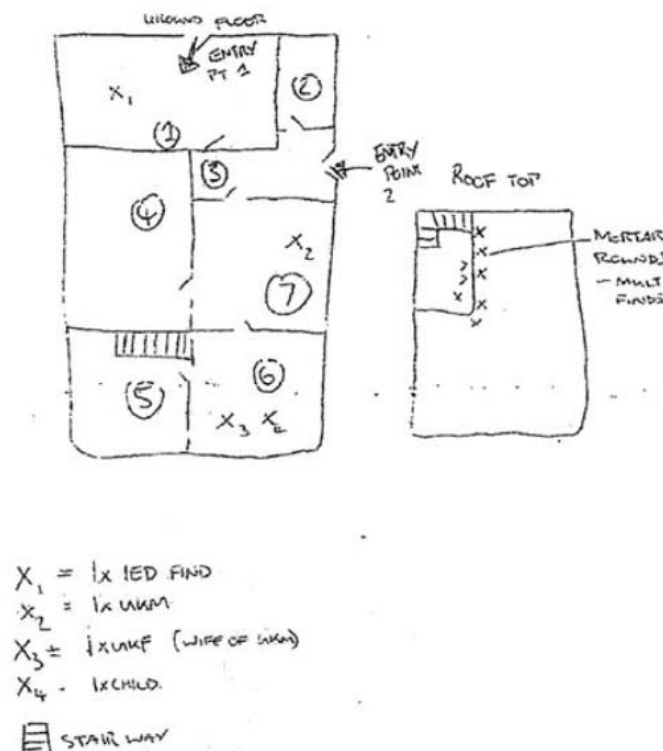 GROUND FLOOR
ENTRY
PT 1
X1
1
2
3
ENTRY
POINT
2
4
X2
7
5
6
X3 X4
ROOF TOP
MORTAR
ROUNDS
- MULT
FINDS
X1 = 1x IED FIND
X2 = 1x UKM
X3 = 1x UKF (WIFE OF UKM)
X4 - 1x CHILD.
STAIR WAY